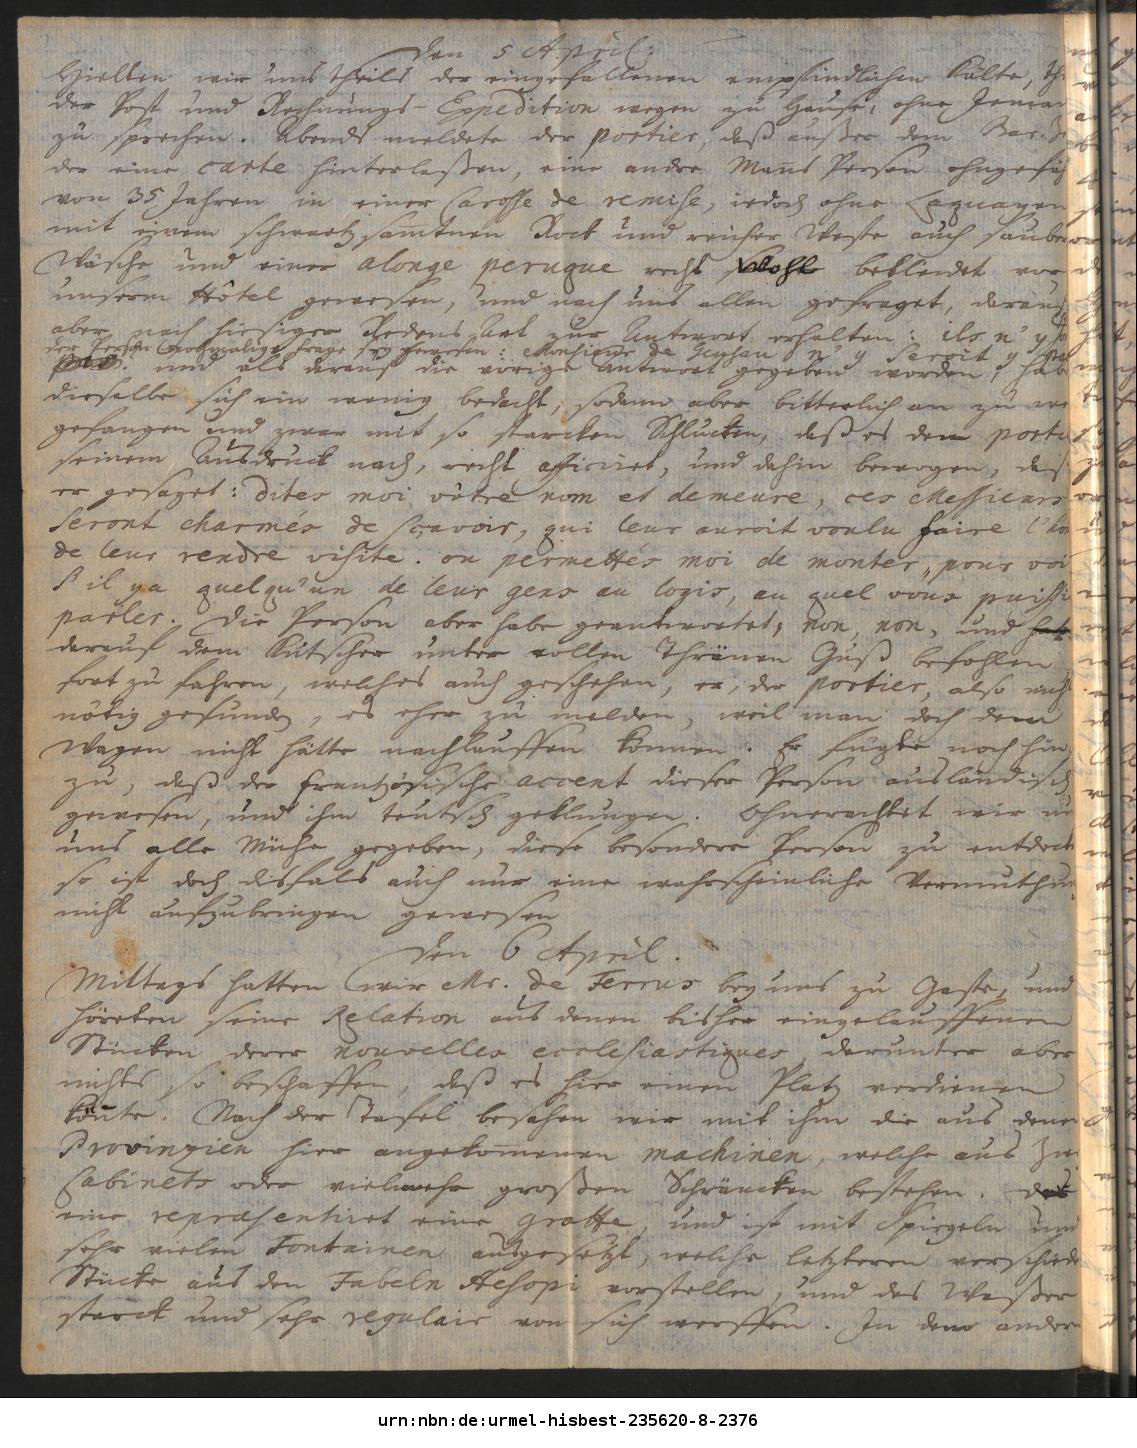 Den 5 April:
Hielten wir uns theils der eingefallenen empfindlichen Kälte, th
der Post und Rechnungs-Expedition wegen zu Hause, ohne Jeman
zu sprechen. Abends meldete der portier, daß außer dem Bar.
der eine carte hinterlaßen, eine andre Manns Person ohngefäh
von 35 Jahren in einer Carosse de remise, iedoch ohne Laquayen
mit einem schwartz samtnen Rock und reicher Weste auch saube
Wäsche und einer alonge peruque recht wohl bekleidet vor
unserm Hôtel gewesen, und nach uns allen gefraget, darauf
aber, nach hiesiger Redens Art zur Antwort erhalten: ils n'y
der Person nochmalige frage sey gewesen: Monsieur de Geyhau n'y seroit
und als darauf die vorige Antwort gegeben worden, habe
dieselbe sich ein wenig bedacht, sodann aber bitterlich an zu we
gefangen und zwar mit so starcken Schlucken, daß es dem porti
seinem Ausdruck nach, recht afficiret, und dahin bewogen, daß
er gesaget: Dites moi vôtre nom et demeure, ces Messieurs
seront charmés de sçavoir, qui leur auroit voulu faire l'ho
de leur rendre visite. ou permettés moi de monter, pour voi
s'il y a quelqu'un de leur gens au logis, au quel vous puissi
parler. Die Person aber habe geantwortet, non, non, und
darauf dem Kutscher unter vollen Thränen Guß befohlen
fort zu fahren, welches auch geschehen, er, der portier, also nich
nötig gefunden, es eher zu melden, weil man doch dem
Wagen nicht hätte nachlauffen können. Er fügte noch hin
zu, daß der frantzösische accent dieser Person ausländisch
gewesen, und ihm teutsch geklungen. Ohnerachtet wir nu
uns alle Mühe gegeben, diese besondere Person zu entdeck
so ist doch disfals auch nur eine wahrscheinliche Vermuthu
nicht aufzubringen gewesen
Den 6 April.
Mittags hatten wir Mr. de Ferrus bey uns zu Gaste, und
höreten seine Relation aus denen bisher eingelauffenen
Stücken derer nouvelles ecclesiastiques, darunter aber
nichts so beschaffen, daß es hier einen Platz verdienen
könte. Nach der Tafel besahen wir mit ihm die aus denen
Provinzien hier angekommenen machinen, welche aus zwe
Cabinets oder vielmehr großen Schräncken bestehen. Das
eine repræsentiret eine grotte, und ist mit Spiegeln und
sehr vielen Fontainen ausgesetzt, welche letzteren verschiede
Stücke aus den Fabeln Aesopi vorstellen, und das Waßer
starck und sehr regulair von sich werffen. In dem andern
urn:nbn:de:urmel-hisbest-235620-8-2376